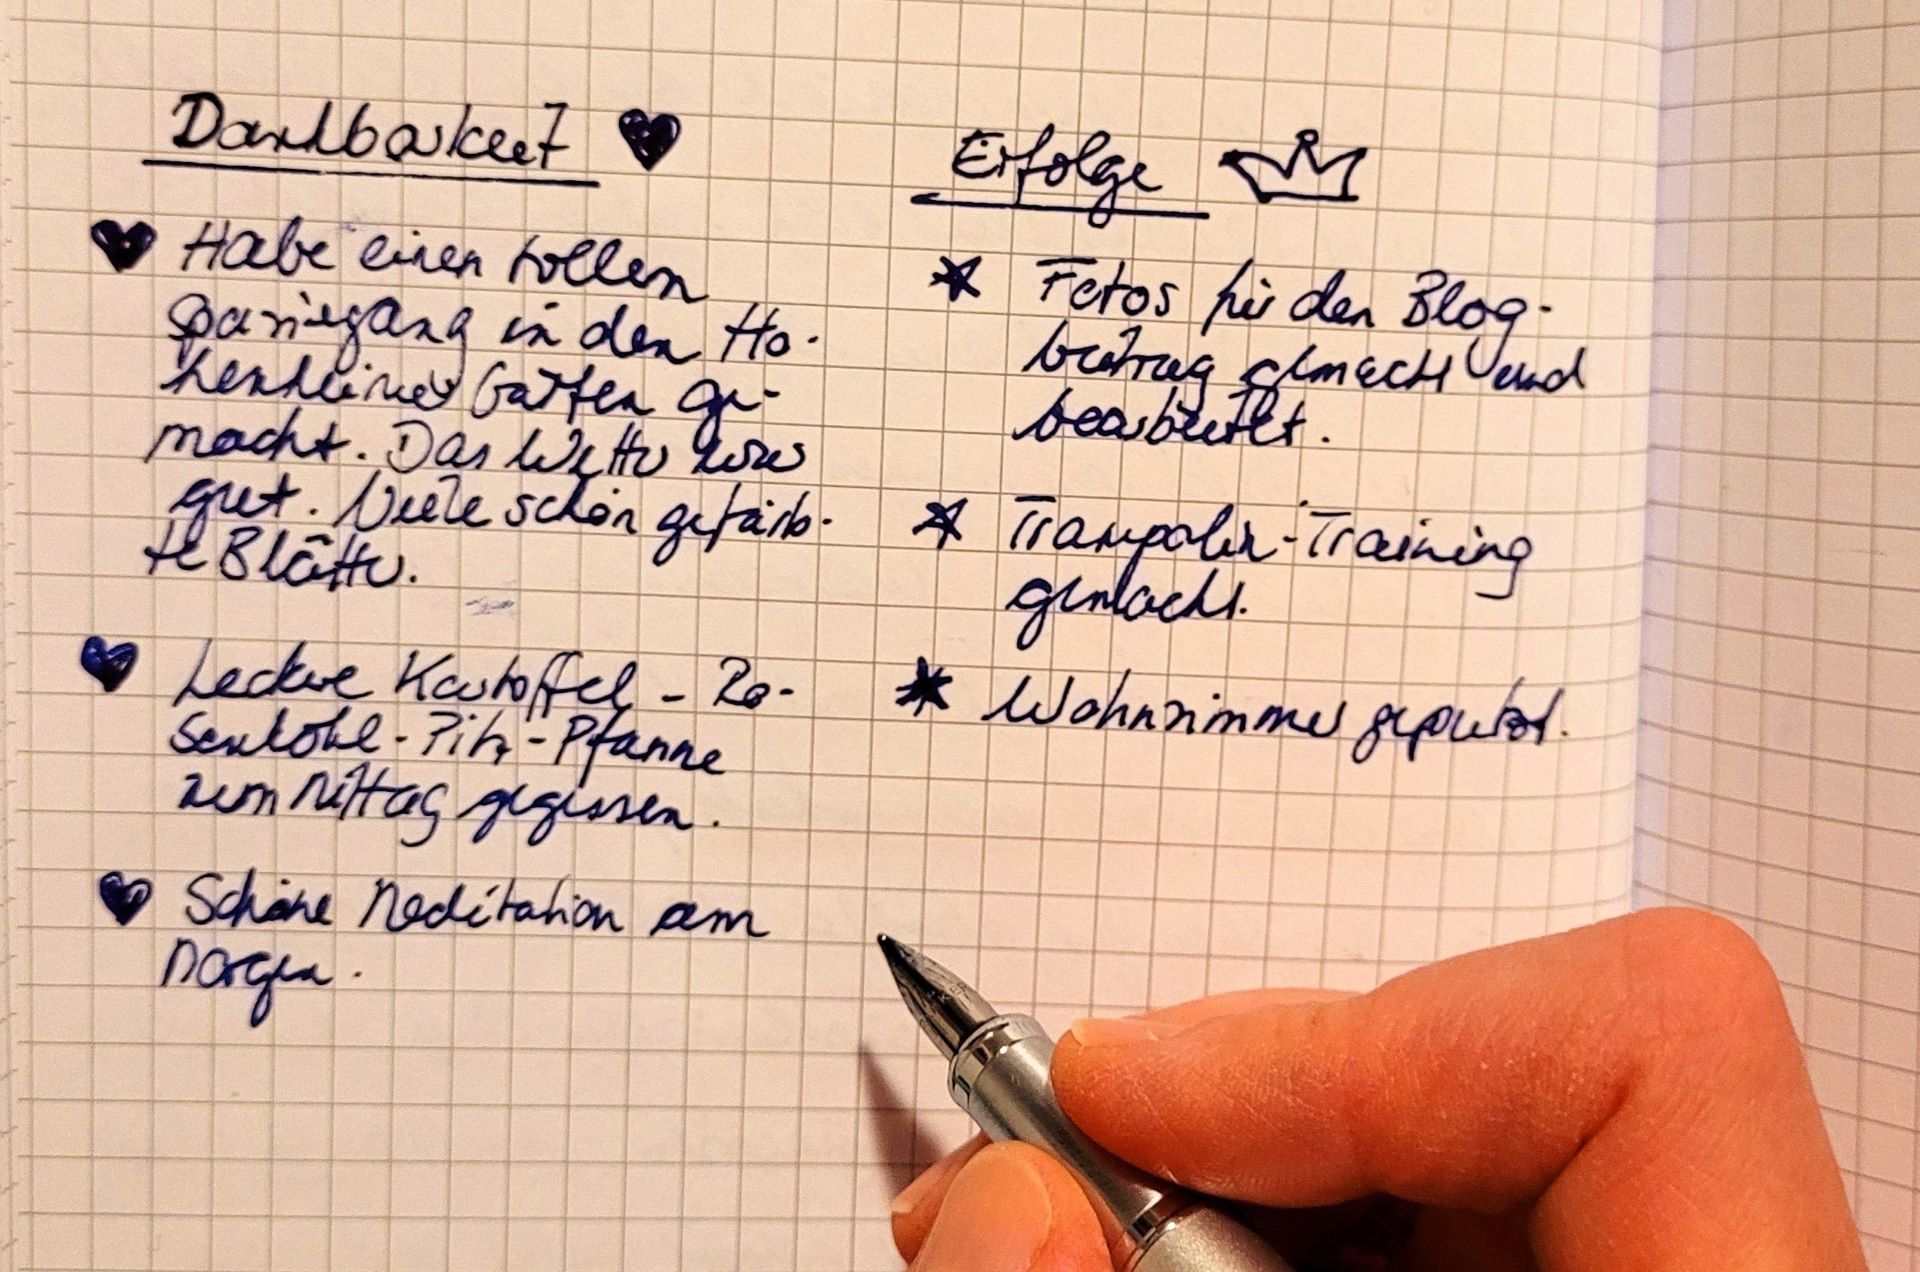 Dankbarkeit
Habe einen tollen
Spaziergang in den Ho-
henheimer Gärten ge-
macht. Das Wetter war
gut. Viele schön gefärb-
te Blätter.
Leckere Kartoffel - Ro-
senkohl - Pilz - Pfanne
zum Mittag gegessen.
Schöne Meditation am
Morgen.
Erfolge
Fotos für den Blog-
beitrag gemacht und
bearbeitet.
Trampolin-Training
gemacht.
Wohnzimmer geputzt.